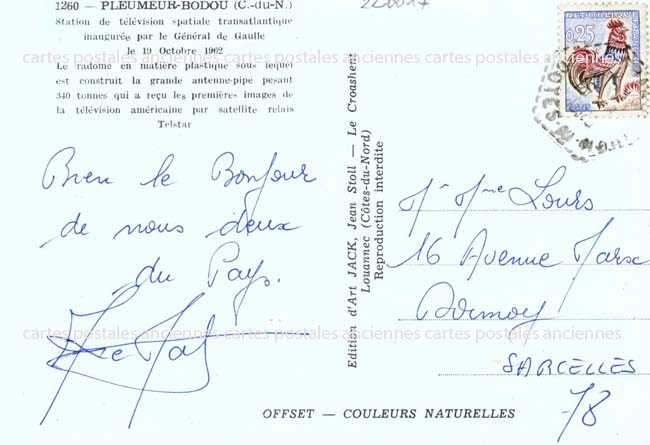 1260 — PLEUMEUR-BODOU (C.-du-N.)
Station de télévision spatiale transatlantique
inaugurée par le Général de Gaulle
le 19 Octobre 1962
Le radome en matière plastique sous lequel
est construit la grande antenne-pipe pesant
340 tonnes qui a reçu les premières images de
la télévision américaine par satellite relais
Telstar
Bien le Bonjour
de nous deux
du Pays.
Edition d'Art JACK, Jean Stoll — Le Croashent
Louannec (Côtes-du-Nord)
Reproduction interdite
220017
0,25
Mr Mme Lours
16 Avenue
SARCELLES
78
OFFSET — COULEURS NATURELLES
cartes postales anciennes cartes postales anciennes cartes postales anciennes
cartes postales anciennes cartes postales anciennes cartes postales anciennes